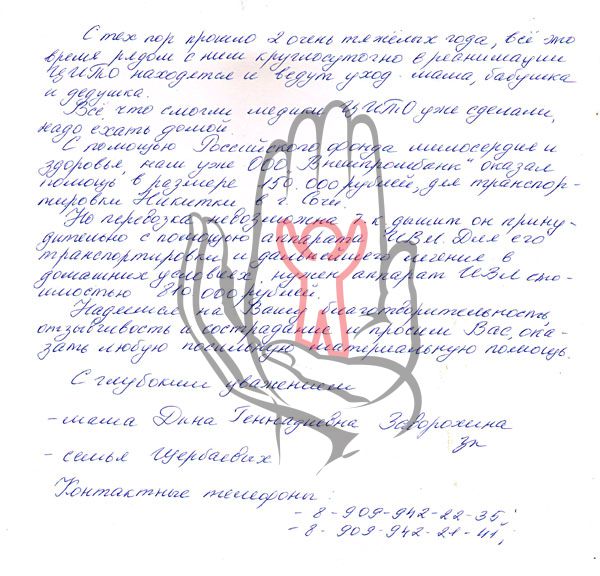 С тех пор прошло 2 очень тяжёлых года, всё это
время рядом с ним круглосуточно в реанимации
ЦИТО находятся и ведут уход - мама, бабушка
и дедушка.
Всё, что смогли медики ЦИТО уже сделали,
надо ехать домой.
С помощью Российского фонда милосердия и
здоровья, нам уже ООО "Внешпромбанк" оказал
помощь в размере 150.000 рублей, для транспор-
тировки Никитки в г. Сочи.
Но перевозка невозможна т.к. дышит он прину-
дительно с помощью аппарата ИВЛ. Для его
транспортировки и дальнейшего лечения в
домашних условиях, нужен аппарат ИВЛ сто-
имостью 810 000 рублей.
Надеемся на Вашу благотворительность,
отзывчивость и сострадание и просим Вас, ока-
зать любую посильную материальную помощь.
С глубоким уважением
- мама Дина Геннадиевна
- семья Щербаевых
Контактные телефоны:
- 8-909-942-22-35;
- 8-909-942-21-41;